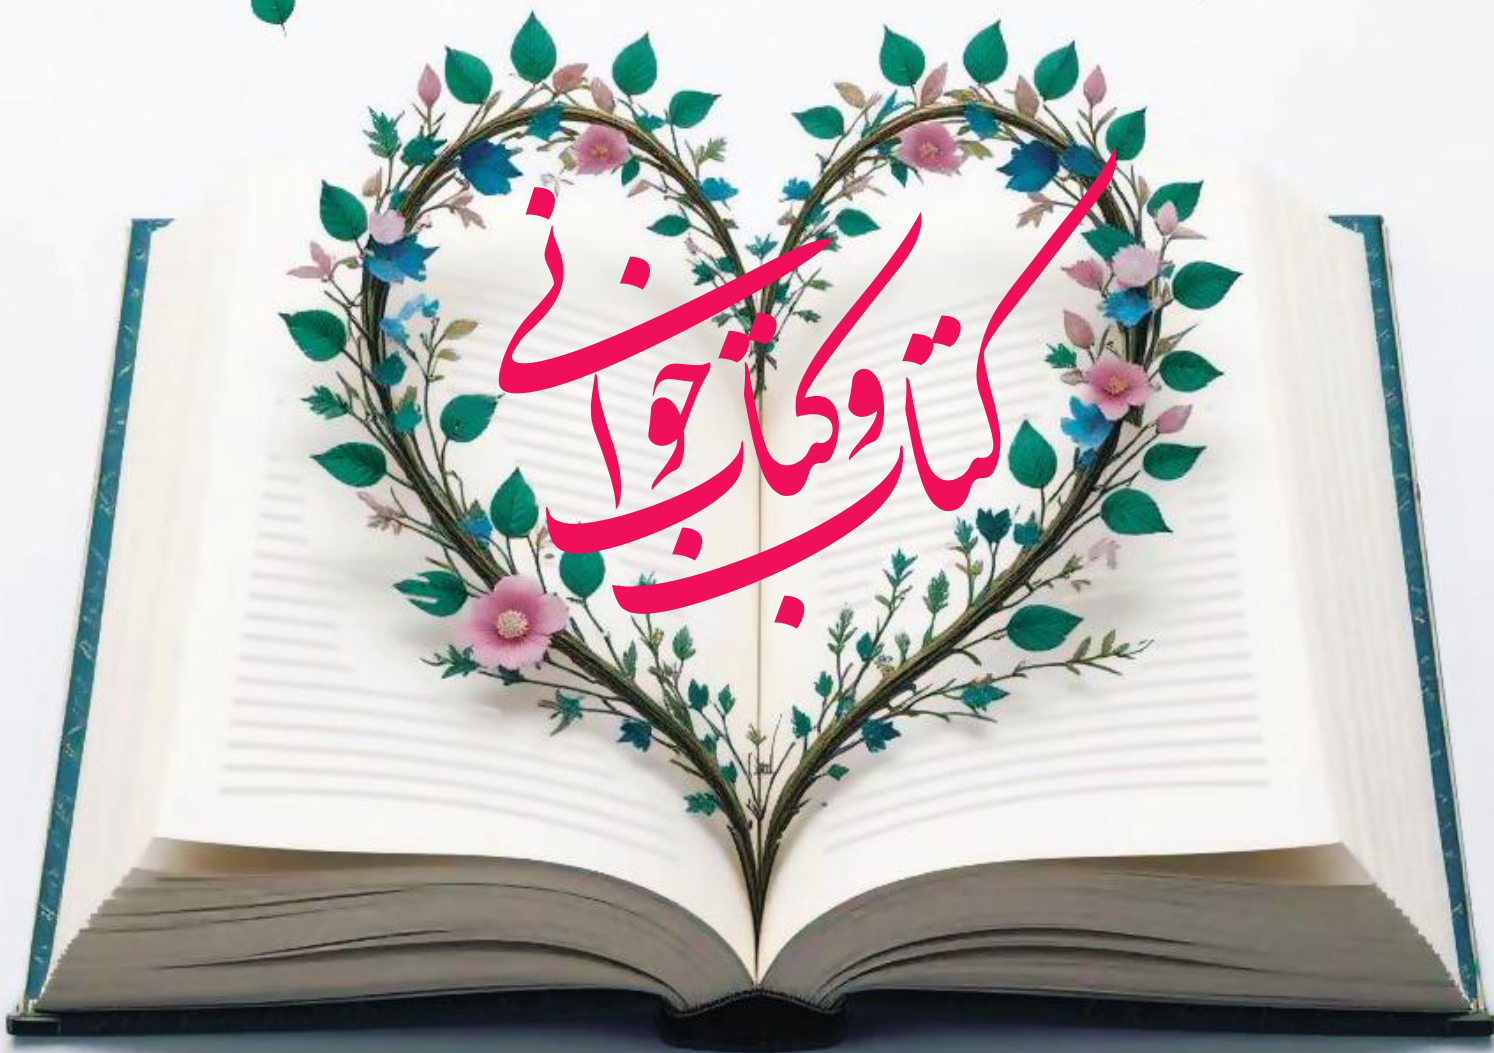 کتاب و کتابخوانی